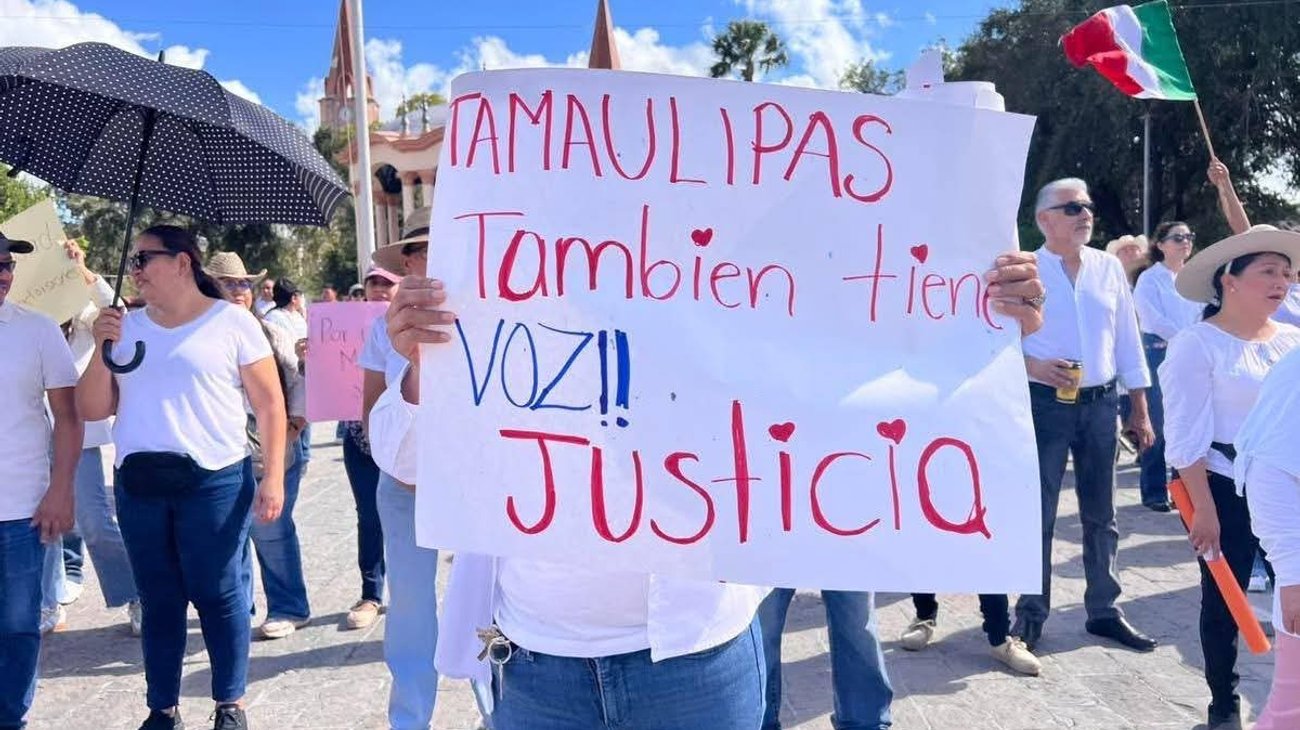 TAMAULIPAS
Tambien tiene
VOZ!!
Justicia
Por